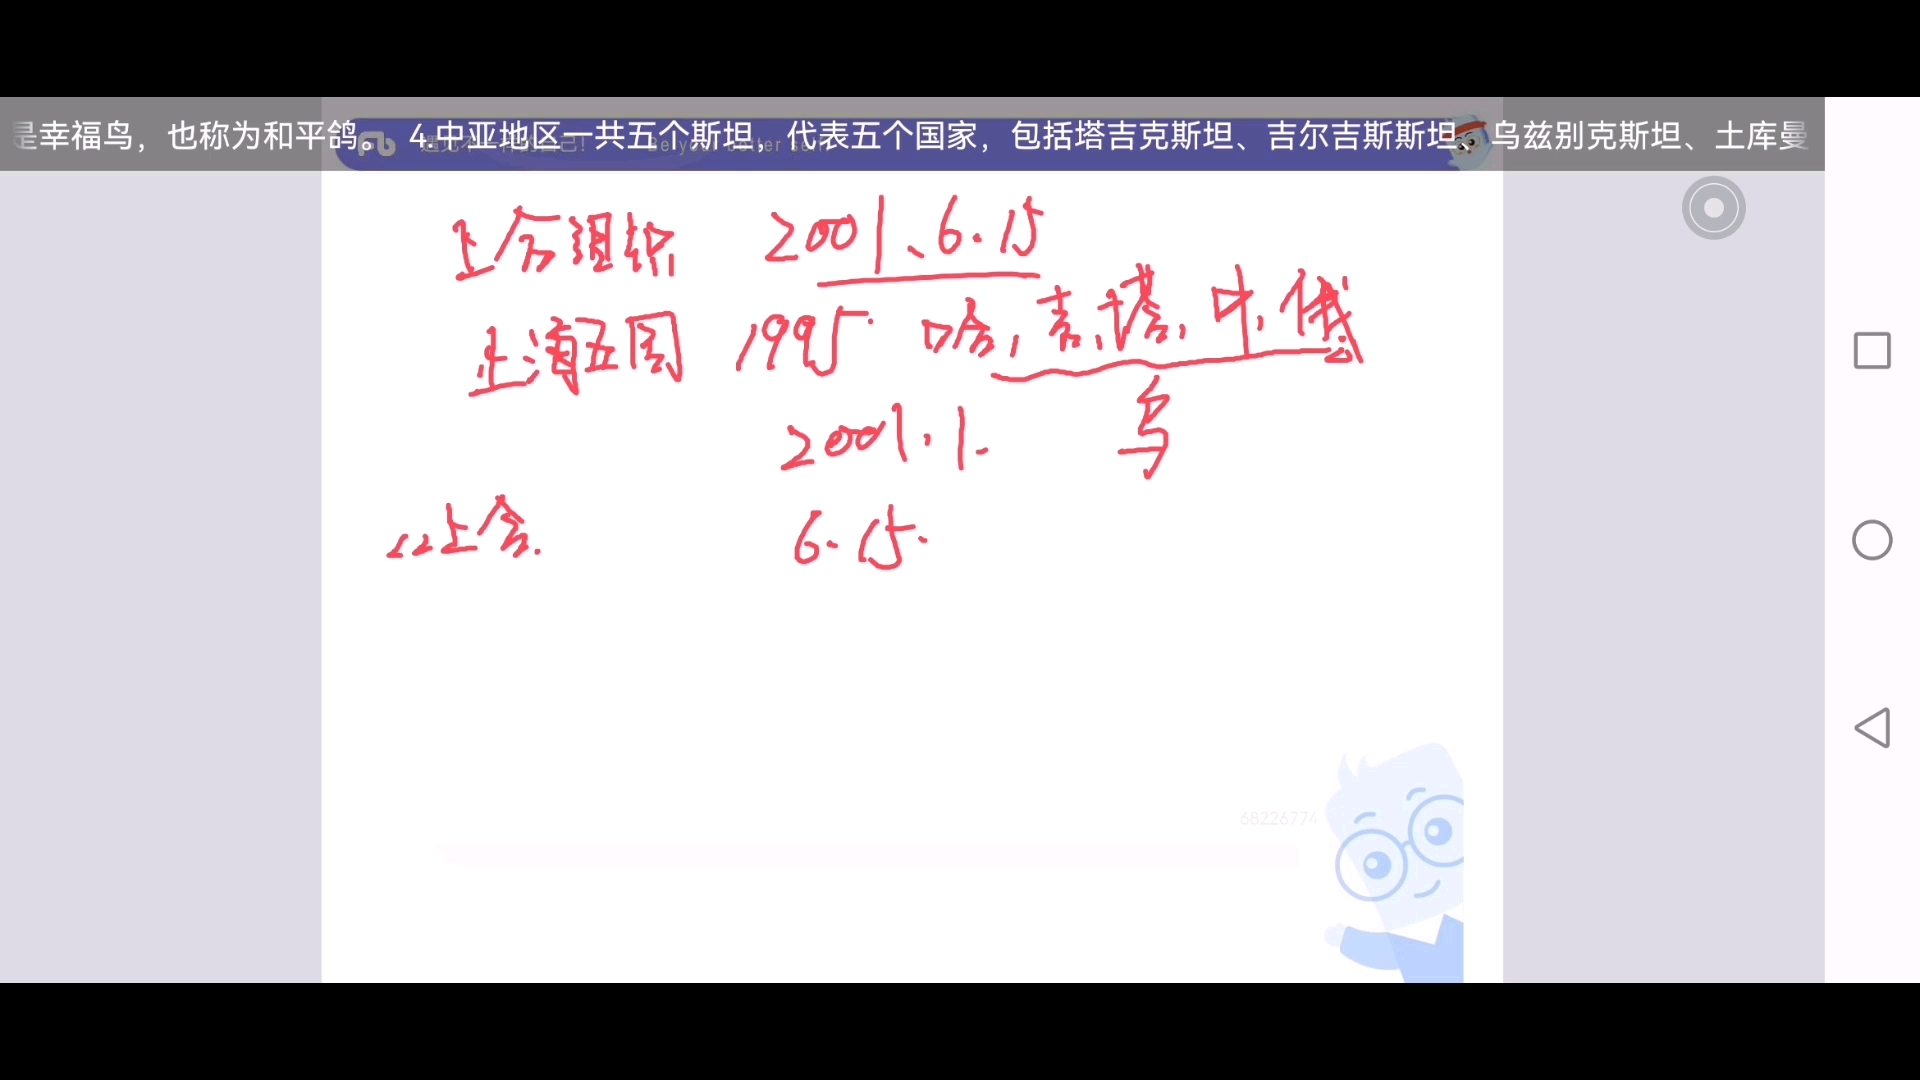 是幸福鸟，也称为和平鸽。 4.中亚地区一共五个斯坦，代表五个国家，包括塔吉克斯坦、吉尔吉斯斯坦、乌兹别克斯坦、土库曼
上合组织 2001、6.15
上海五国 1995. 哈,吉,塔,中,俄
2001.1. 乌
上合. 6.15.
68226774